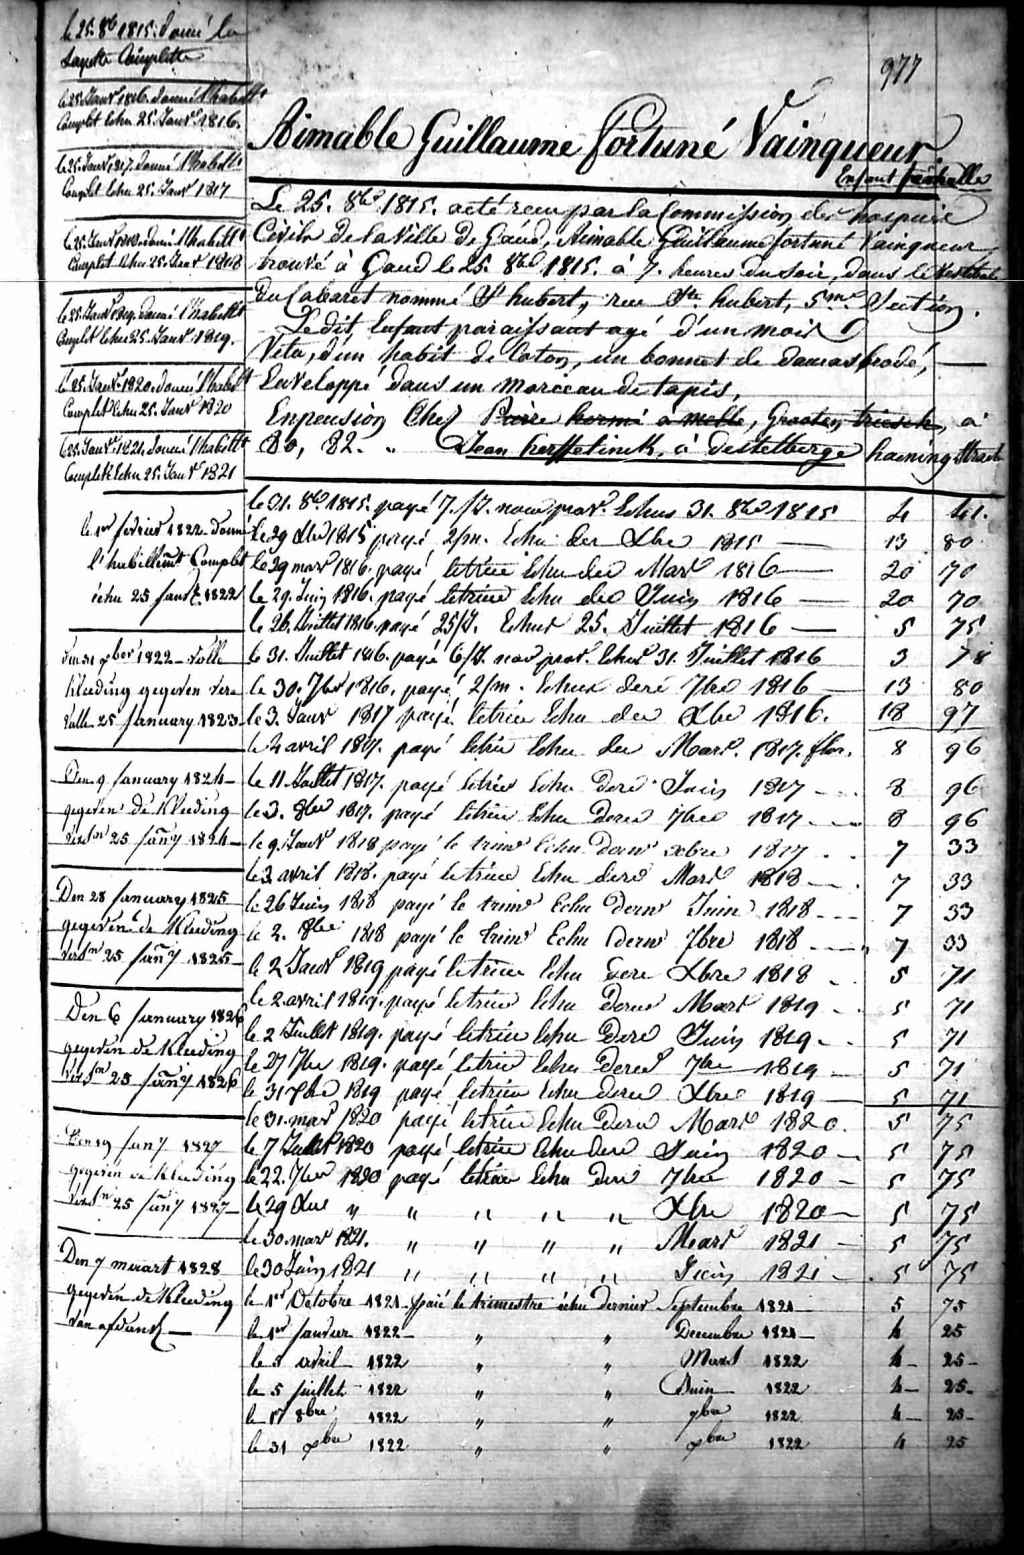 977
Aimable Guillaume fortuné Vainqueur
Enfant
Le 25. 8bre 1815. acté recu par la Commission des hospices
Civils de la Ville de Gand, Aimable Guillaume fortuné Vainqueur
trouvé à Gand le 25. 8bre 1815. à 7. heures du Soir, dans le Vestibul
Du Cabaret nommé St hubert, rue St. hubert, 5me Section.
Ledit Enfant paraissant agé d'un mois
Vetu, d'un habit de Coton, un bonnet de damas brodé,
Enveloppé dans un morceau de tapis,
Enpension Chez Pierre à Melle, à
80, 82. " Jean à destelberge
le 25. 8bre 1815. donné la
Layette Complette
le 25. Janvr 1816. donné l'habillt
Complet Echu 25. Janvr 1816.
le 25. Janvr 1817. donné l'habillt
Complet Echu 25. Janvr 1817
le 25. Janvr 1818. donné l'habillt
Complet Echu 25. Janvr 1818
le 25. Janvr 1819. donné l'habillt
Complet Echu 25. Janvr 1819.
le 25. Janvr 1820. donné l'habillt
Complet Echu 25. Janvr 1820
le 25. Janvr 1821. donné l'habillt
Complet Echu 25. Janvr 1821
le 1er fevrier 1822. donné
l'habillemt Complet
échu 25 Janvr 1822
den 31 xber 1822 — volle
kleeding gegeven verv
25 January 1823
Den 9 January 1824
gegeven de kleeding
25 Jany 1824
Den 28 January 1825
gegeven de kleeding
25 Jany 1825
Den 6 January 1826
gegeven de kleeding
25 Jany 1826
Den 19 Jany 1827
gegeven de kleeding
25 Jany 1827
Den 7 maart 1828
gegeven de kleeding
le 31. 8bre 1815. payé 7. Echus 31. 8bre 1815 4 41.
le 29 Xbre 1815 payé 2/m. Echu der Xbre 1815 13 80
le 29 mars 1816. payé letrim Echu der Mars 1816 20 70
le 29. Juin 1816. payé letrim Echu der Juin 1816 20 70
le 26. Juillet 1816 payé 25/J. Echus 25. Juillet 1816 5 75
le 31. Juillet 1816. payé 6/J. Echus 31. Juillet 1816 3 78
le 30. 7bre 1816. payé 2/m. Echus 7bre 1816 13 80
le 3. Janvr 1817 payé letrim Echu der Xbre 1816. 18 97
le 2 avril 1817. payé letrim Echu der Mars. 1817. flor. 8 96
le 11. Juillet 1817. payé letrim Echu Derr Juin 1817 8 96
le 3. 8bre 1817. payé letrim Echu Derr 7bre 1817 8 96
le 9. Janvr 1818 payé le trimr Echu Dernr xbre 1817 7 33
le 3 avril 1818. payé letrim Echu derr Mars 1818 7 33
le 26 Juin 1818 payé le trimr Echu Dernr Juin 1818 7 33
le 2. 8bre 1818 payé le trimr Echu Dernr 7bre 1818 7 33
le 2 Janvr 1819 payé letrim Echu Derr Xbre 1818 5 71
le 2 avril 1819. payé letrim Echu Derr Mars 1819 5 71
le 2 Juillet 1819. payé letrim Echu Derr Juin 1819 5 71
le 27 7bre 1819. payé letrim Echu Derr 7bre 1819 5 71
le 31 Xbre 1819 payé letrim Echu derr Xbre 1819 5 71
le 31. mars 1820 payé letrim Echu Derr Mars 1820. 5 75
le 7 Juillet 1820 payé letrim Echu derr Juin 1820 5 75
le 22. 7bre 1820 payé letrim Echu Derr 7bre 1820 5 75
le 29 Xbre " " " " " Xbre 1820 5 75
le 30. mars 1821. " " " " Mars 1821 5 75
le 30 Juin 1821 " " " " Juin 1821 5 75
le 1er Octobre 1821 payé le trimestre échu dernier Septembre 1821 5 75
le 1er Janvier 1822 " " Decembre 1821 4 25
le 3 avril 1822 " " Mars 1822 4 25
le 5 juillet 1822 " " Juin 1822 4 25
le 17 8bre 1822 " " 7bre 1822 4 25
le 31 xbre 1822 " " xbre 1822 4 25